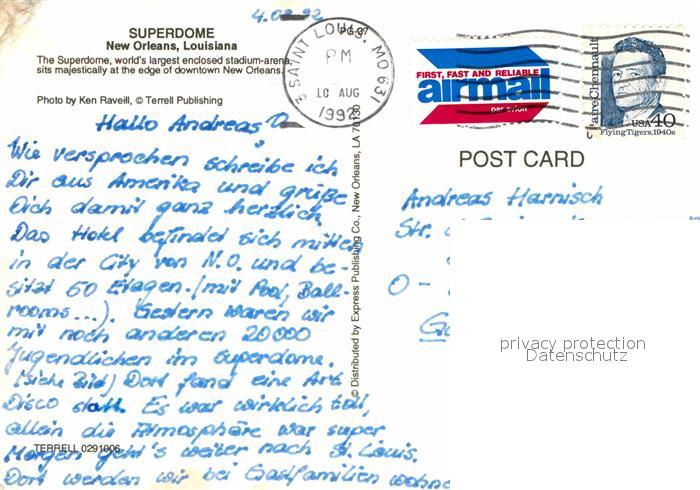 4.08.92
SUPERDOME
New Orleans, Louisiana
The Superdome, world's largest enclosed stadium-arena,
sits majestically at the edge of downtown New Orleans.
Photo by Ken Raveill, © Terrell Publishing
SAINT LOUIS, MO 631
PM
10 AUG
1992
FIRST, FAST AND RELIABLE
airmail
par avion
Claire Chennault
USA 40
Flying Tigers, 1940s
POST CARD
Hallo Andreas
Wie versprochen schreibe ich
Dir aus Amerika und grüße
Dich damit ganz herzlich.
Das Hotel befindet sich mitten
in der City von N.O. und be-
sitzt 50 Etagen. (mit Pool, Ball-
rooms...). Gestern waren wir
mit noch anderen 20000
Jugendlichen im Superdome.
(siehe Bild) Dort fand eine Art
Disco statt. Es war wirklich toll,
allein die Atmosphäre war super
Morgen geht's weiter nach St. Louis.
Dort werden wir bei Gastfamilien wohne
TERRELL 0291006
© Distributed by Express Publishing Co., New Orleans, LA 70130
Andreas Harnisch
Str.
O -
privacy protection
Datenschutz